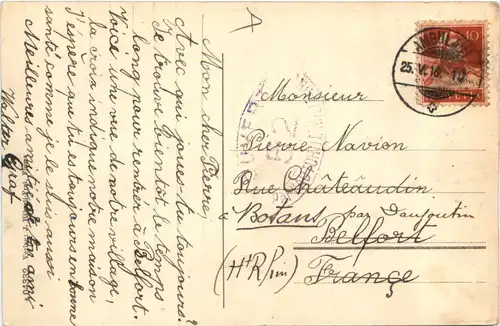 A
Mon cher Pierre,
Avec qui joues-tu toujours?
Se trouve bientôt le temps
long pour rentrer à Belfort.
Voici une vue de notre village,
la croix indique notre maison
J'éspère que tu es toujours en bonne
santé comme je le suis aussi
Meilleures
ton ami
Walter Graf
10
25.V.16
Monsieur
Pierre Navion
Rue Châteaudin
à Botans par Danjoutin
Belfort
(Ht Rhin) France